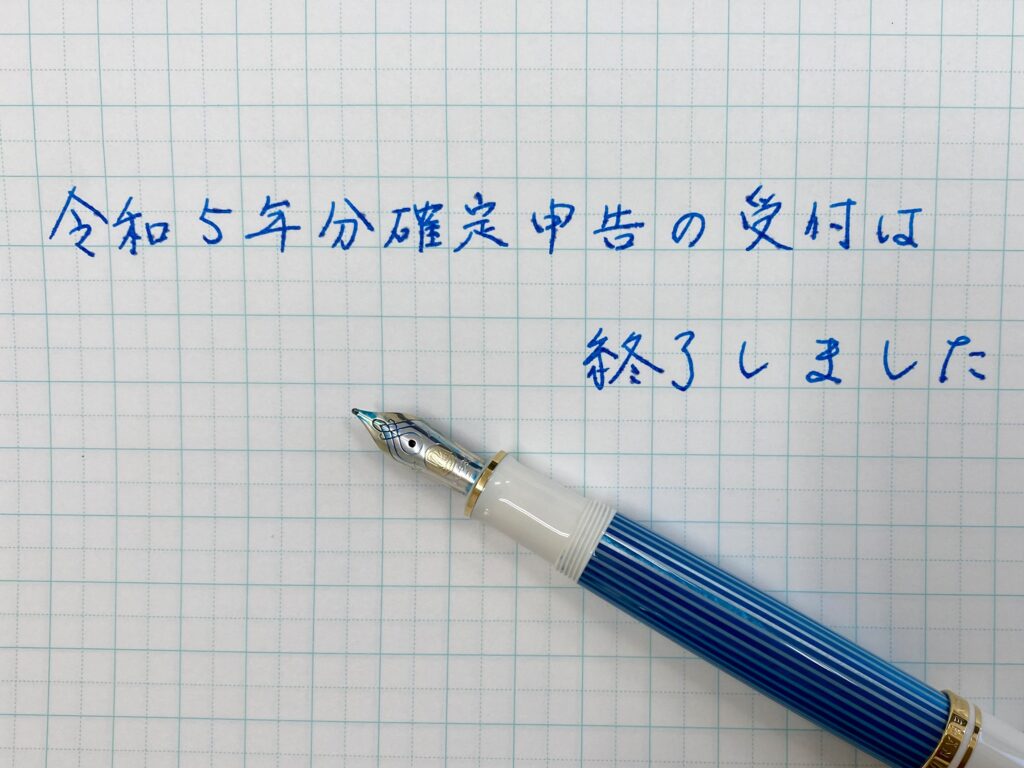 令和5年分確定申告の受付は
終了しました